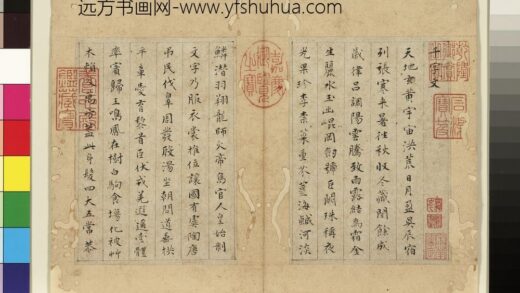 远方书画网-www.yfshuhua.com
千字文
天地玄黃宇宙洪荒日月盈昃辰宿
列張寒来暑往秋收冬藏閏餘成
歲律呂調陽雲騰致雨露結為霜金
生麗水玉出崐岡劒號巨闕珠稱夜
光果珍李柰菜重芥薑海鹹河淡
鱗潛羽翔龍師火帝鳥官人皇始制
文字乃服衣裳推位讓國有虞陶唐
弔民伐辠周發殷湯坐朝問道垂拱
平章愛育黎首臣伏戎羌遐邇壹體
率賓歸王鳴鳳在樹白駒食場化被艸
木賴及萬方蓋此身髮四大五常恭